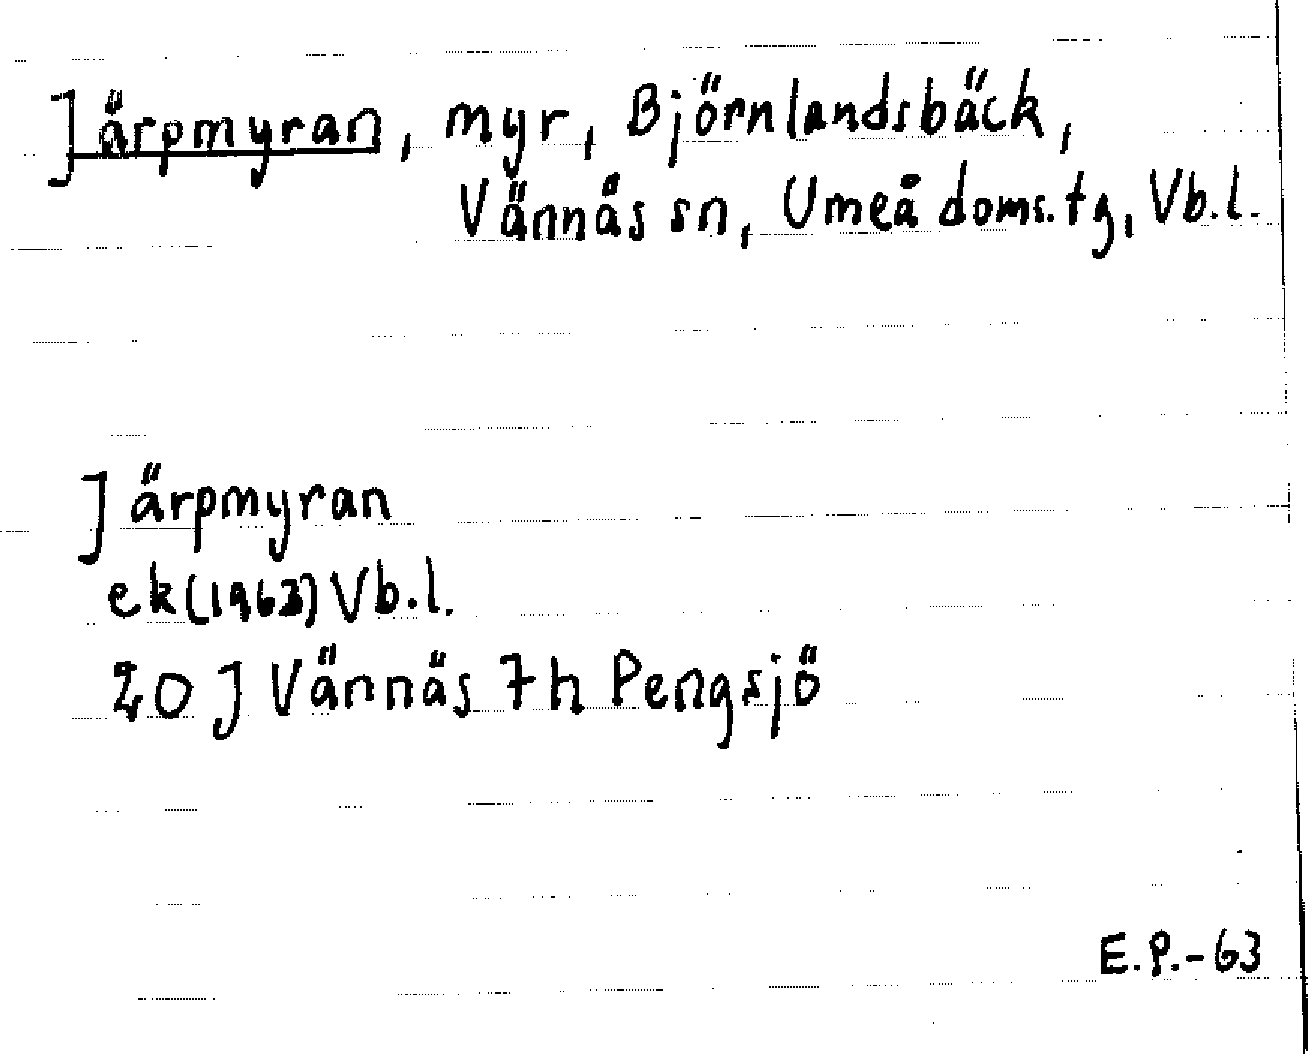 Järpmyran, myr, Björnlandsbäck,
Vännäs sn, Umeå doms.tg, Vb.l.
Järpmyran
ek(1963)Vb.l.
20 J Vännäs 7h Pengsjö
E.P.-63